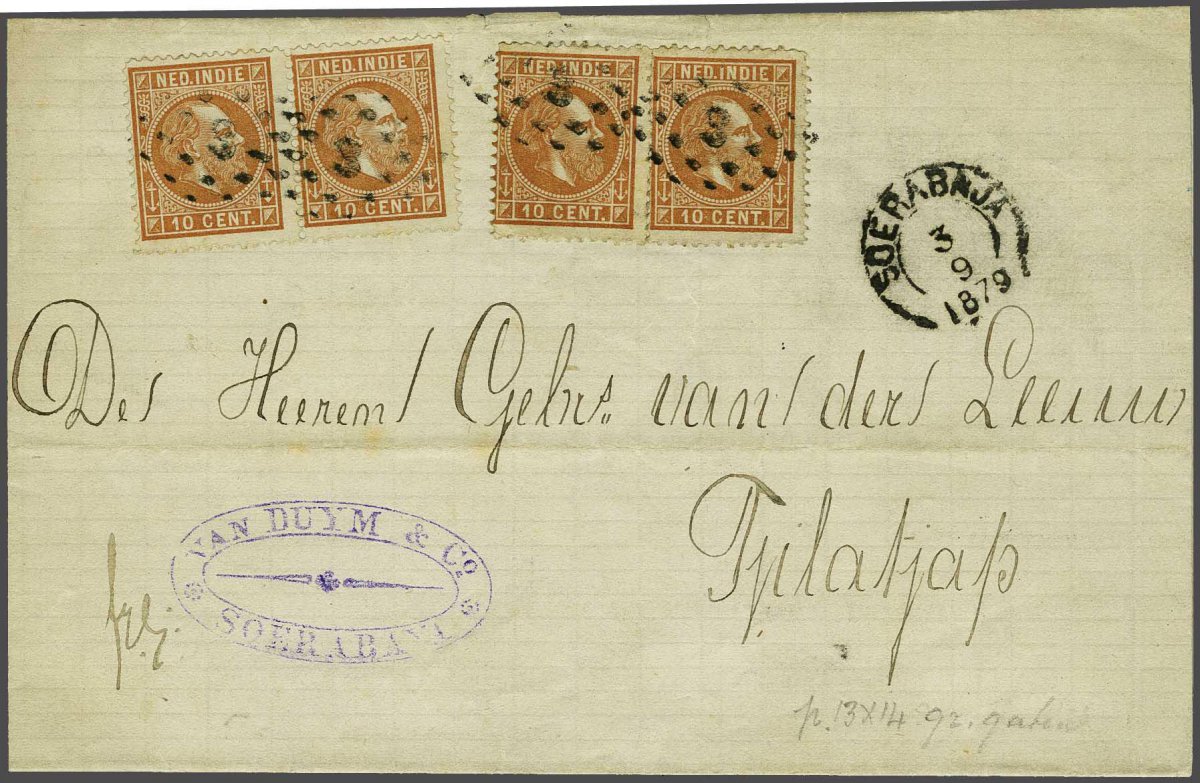 NED. INDIE NED. INDIE NED. INDIE NED. INDIE
10 CENT. 10 CENT. 10 CENT. 10 CENT.
SOERABAJA
3
9
1879
De Heeren Gebrs. van der Leeuw
Tjilatjap
VAN DUYM & Co.
SOERABAYA
p. 13x14 gr. gaten